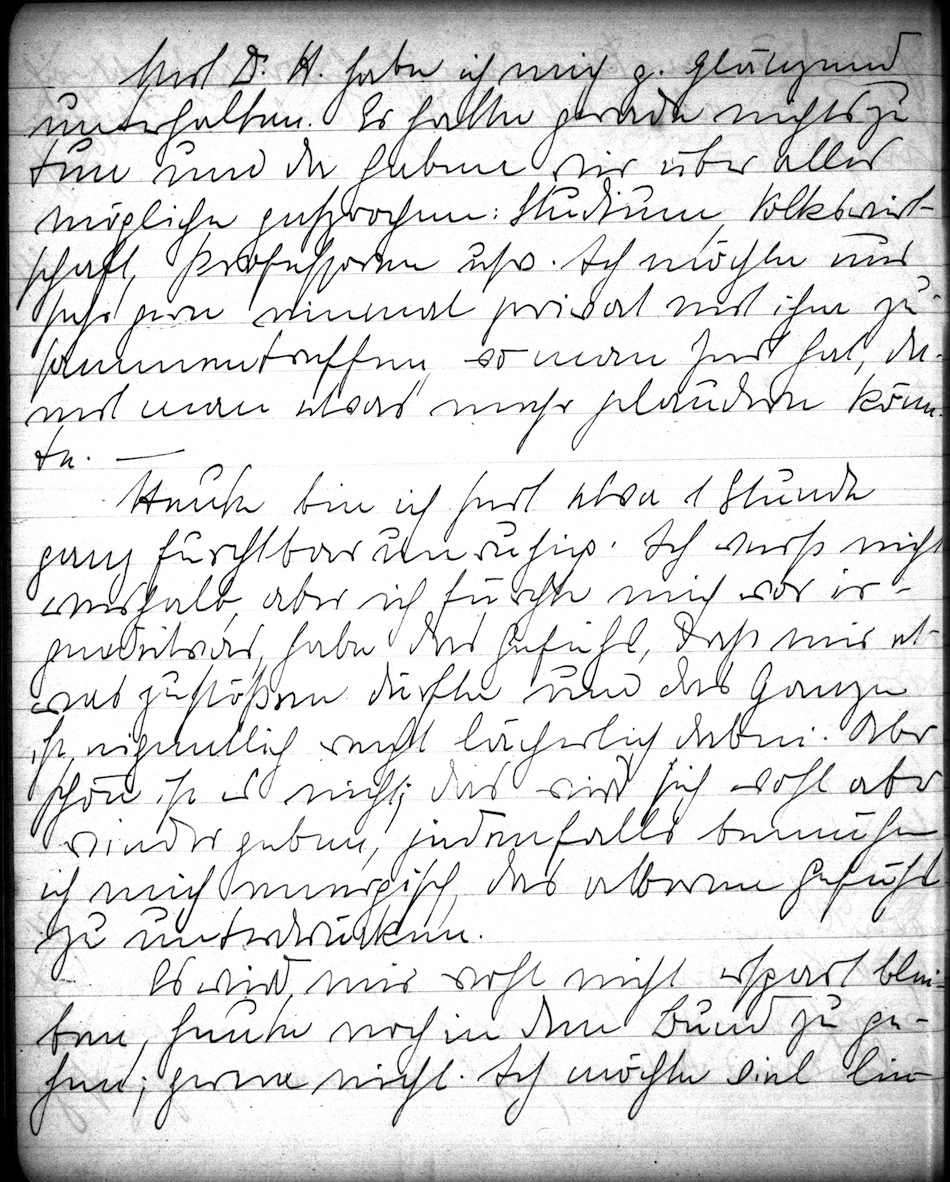 Mit D. H. habe ich mich g. glänzend
unterhalten. Er hatte gerade nichts zu
tun und da haben wir über alles
mögliche gesprochen: Studium, Volkswirt-
schaft, Professoren usw. Ich möchte nur
sehr gern einmal privat mit ihm zu-
sammentreffen, wo man Zeit hat, da-
mit man etwas mehr plaudern könn-
te. —
Heute bin ich seit etwa 1 Stunde
ganz furchtbar unruhig. Ich weiß nicht
weshalb, aber ich fürchte mich vor ir-
gendetwas, habe das Gefühl, daß mir et-
was zustößen dürfte und das Ganze
ist eigentlich recht lächerlich dabei. Aber
schön ist es nicht; das wird sich wohl aber
wieder geben, jedenfalls bemühe
ich mich energisch, das alberne Gefühl
zu unterdrücken.
Es wird mir wohl nicht erspart blei-
ben, heute noch in den Bund zu ge-
hen; gerne nicht. Ich möchte viel lie-